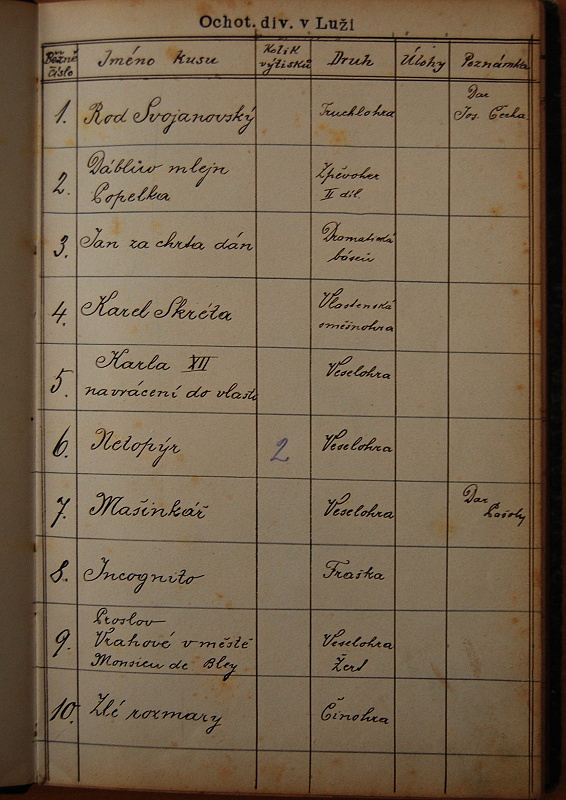 Ochot. div. v Luži
Běžné číslo Jméno kusu Kolik výtisků Druh Úlohy Poznámka
1. Rod Svojanovský Truchlohra Dar
Jos. Čerha.
2. Ďáblův mlejn Zpěvoher
Popelka II díl.
3. Jan za chrta dán Dramatická
báseň
4. Karel Skréta Vlastenská
směšnohra
5. Karla XII Veselohra
navrácení do vlasti
6. Netopýr 2 Veselohra
7. Mašinkář Veselohra Dar
8. Incognito Fraška
9. Proslov
Vrahové v městě Veselohra
Monsieu de Bley Žert
10. Zlé rozmary Činohra